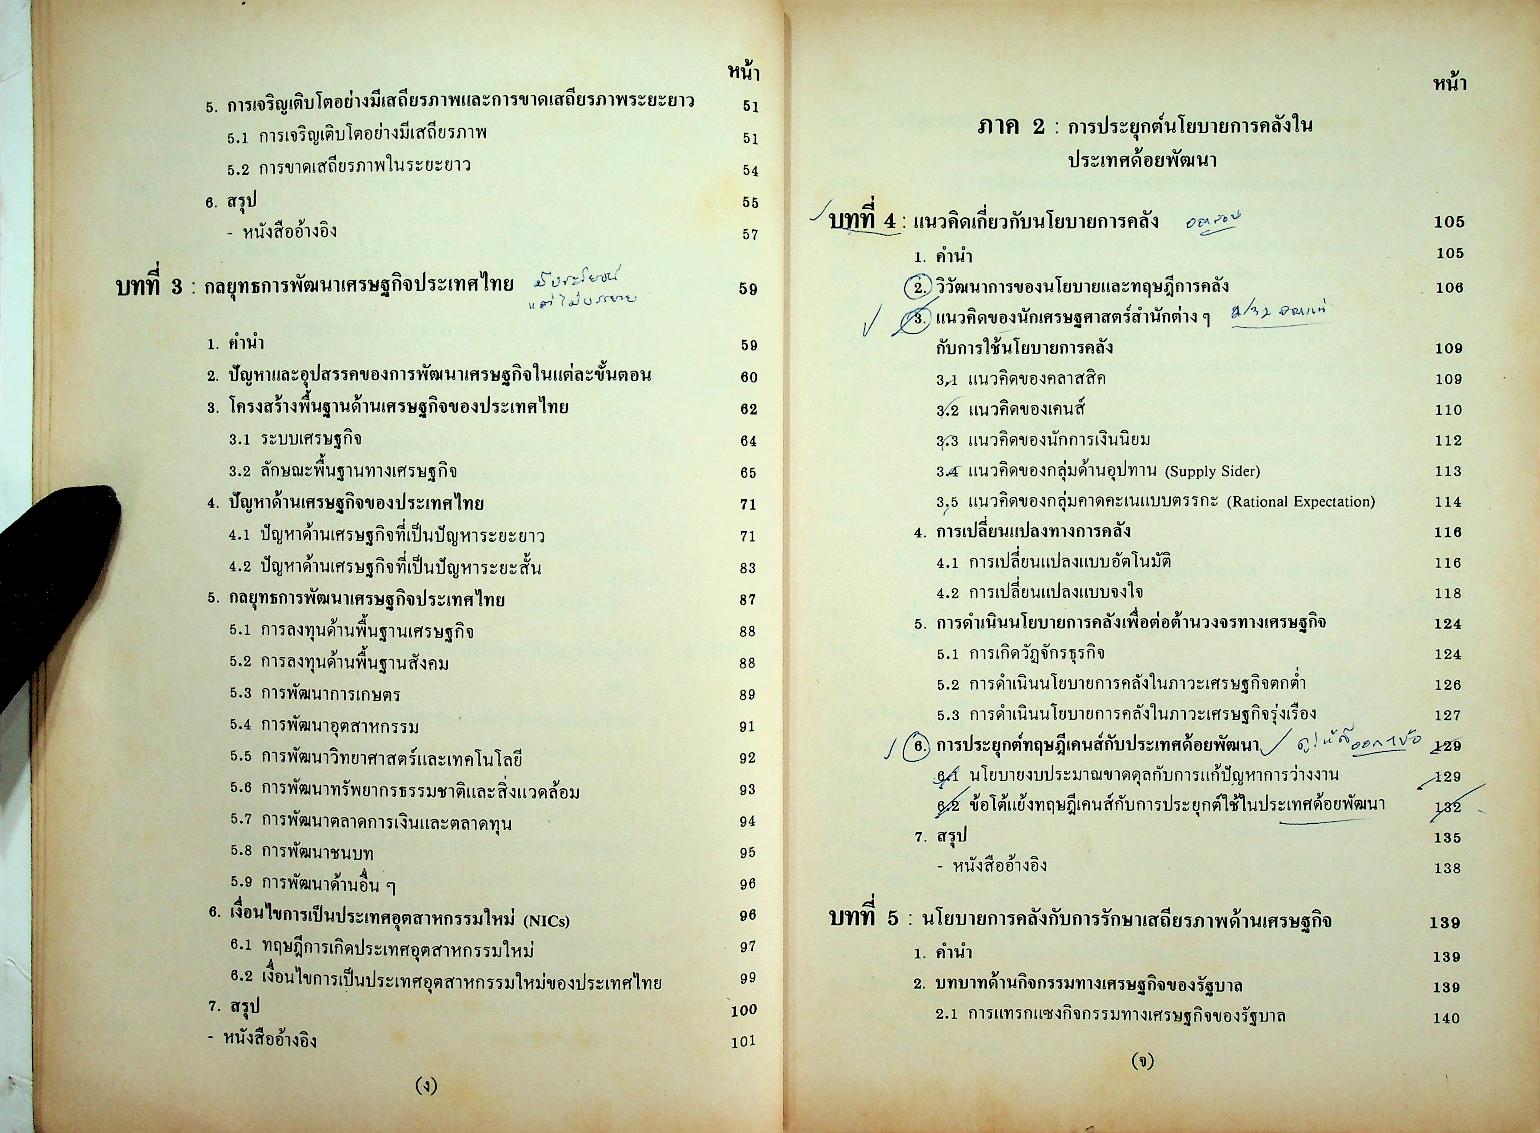 หน้า
5. การเจริญเติบโตอย่างมีเสถียรภาพและการขาดเสถียรภาพระยะยาว 51
5.1 การเจริญเติบโตอย่างมีเสถียรภาพ 51
5.2 การขาดเสถียรภาพในระยะยาว 54
6. สรุป 55
- หนังสืออ้างอิง 57
บทที่ 3 : กลยุทธการพัฒนาเศรษฐกิจประเทศไทย มีประโยชน์ 59
แต่ไม่บรรยาย
1. คำนำ 59
2. ปัญหาและอุปสรรคของการพัฒนาเศรษฐกิจในแต่ละขั้นตอน 60
3. โครงสร้างพื้นฐานด้านเศรษฐกิจของประเทศไทย 62
3.1 ระบบเศรษฐกิจ 64
3.2 ลักษณะพื้นฐานทางเศรษฐกิจ 65
4. ปัญหาด้านเศรษฐกิจของประเทศไทย 71
4.1 ปัญหาด้านเศรษฐกิจที่เป็นปัญหาระยะยาว 71
4.2 ปัญหาด้านเศรษฐกิจที่เป็นปัญหาระยะสั้น 83
5. กลยุทธการพัฒนาเศรษฐกิจประเทศไทย 87
5.1 การลงทุนด้านพื้นฐานเศรษฐกิจ 88
5.2 การลงทุนด้านพื้นฐานสังคม 88
5.3 การพัฒนาการเกษตร 89
5.4 การพัฒนาอุตสาหกรรม 91
5.5 การพัฒนาวิทยาศาสตร์และเทคโนโลยี 92
5.6 การพัฒนาทรัพยากรธรรมชาติและสิ่งแวดล้อม 93
5.7 การพัฒนาตลาดการเงินและตลาดทุน 94
5.8 การพัฒนาชนบท 95
5.9 การพัฒนาด้านอื่น ๆ 96
6. เงื่อนไขการเป็นประเทศอุตสาหกรรมใหม่ (NICs) 96
6.1 ทฤษฎีการเกิดประเทศอุตสาหกรรมใหม่ 97
6.2 เงื่อนไขการเป็นประเทศอุตสาหกรรมใหม่ของประเทศไทย 99
7. สรุป 100
- หนังสืออ้างอิง 101
(ง)
หน้า
ภาค 2 : การประยุกต์นโยบายการคลังใน
ประเทศด้อยพัฒนา
บทที่ 4 : แนวคิดเกี่ยวกับนโยบายการคลัง 105
1. คำนำ 105
2. วิวัฒนาการของนโยบายและทฤษฎีการคลัง 106
3. แนวคิดของนักเศรษฐศาสตร์สำนักต่าง ๆ
กับการใช้นโยบายการคลัง 109
3.1 แนวคิดของคลาสสิค 109
3.2 แนวคิดของเคนส์ 110
3.3 แนวคิดของนักการเงินนิยม 112
3.4 แนวคิดของกลุ่มด้านอุปทาน (Supply Sider) 113
3.5 แนวคิดของกลุ่มคาดคะเนแบบตรรกะ (Rational Expectation) 114
4. การเปลี่ยนแปลงทางการคลัง 116
4.1 การเปลี่ยนแปลงแบบอัตโนมัติ 116
4.2 การเปลี่ยนแปลงแบบจงใจ 118
5. การดำเนินนโยบายการคลังเพื่อต่อต้านวงจรทางเศรษฐกิจ 124
5.1 การเกิดวัฏจักรธุรกิจ 124
5.2 การดำเนินนโยบายการคลังในภาวะเศรษฐกิจตกต่ำ 126
5.3 การดำเนินนโยบายการคลังในภาวะเศรษฐกิจรุ่งเรือง 127
6. การประยุกต์ทฤษฎีเคนส์กับประเทศด้อยพัฒนา 129
6.1 นโยบายงบประมาณขาดดุลกับการแก้ปัญหาการว่างงาน 129
6.2 ข้อโต้แย้งทฤษฎีเคนส์กับการประยุกต์ใช้ในประเทศด้อยพัฒนา 132
7. สรุป 135
- หนังสืออ้างอิง 138
บทที่ 5 : นโยบายการคลังกับการรักษาเสถียรภาพด้านเศรษฐกิจ 139
1. คำนำ 139
2. บทบาทด้านกิจกรรมทางเศรษฐกิจของรัฐบาล 139
2.1 การแทรกแซงกิจกรรมทางเศรษฐกิจของรัฐบาล 140
(จ)